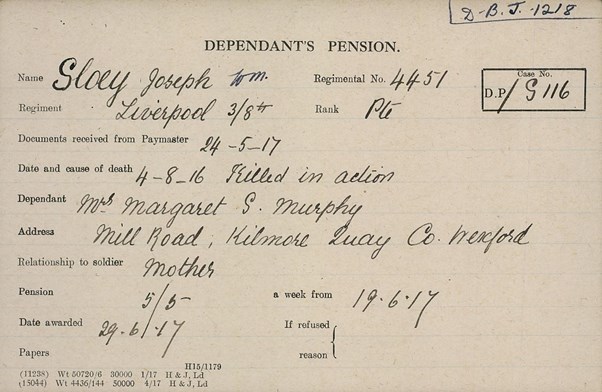 D.B.J. 1218
DEPENDANT'S PENSION.
Name Sloey Joseph Wm. Regimental No. 4451
Case No.
D.P./ S 116
Regiment Liverpool 3/8th Rank Pte
Documents received from Paymaster 24-5-17
Date and cause of death 4-8-16 Killed in action
Dependant Mrs Margaret S. Murphy
Address Mill Road, Kilmore Quay Co. Wexford
Relationship to soldier Mother
Pension 5/5 a week from 19.6.17
Date awarded 29.6.17 If refused
reason
Papers
H15/1179
(11238) Wt 50720/6 30000 1/17 H & J, Ld
(15044) Wt 4436/144 50000 4/17 H & J, Ld